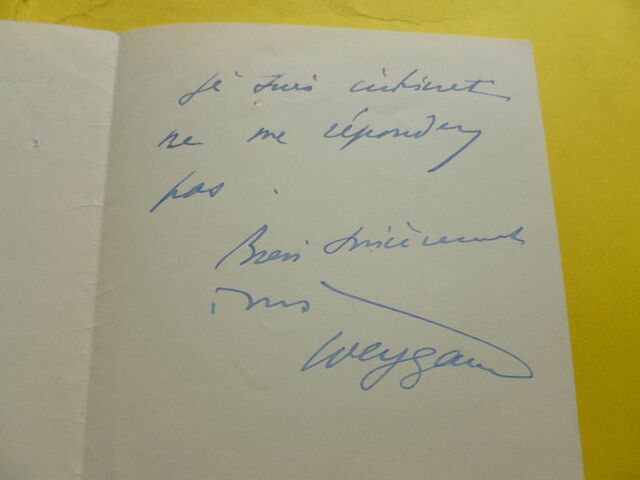 Je suis
ne me répondez
pas.
Bien sincèrement
Weygand